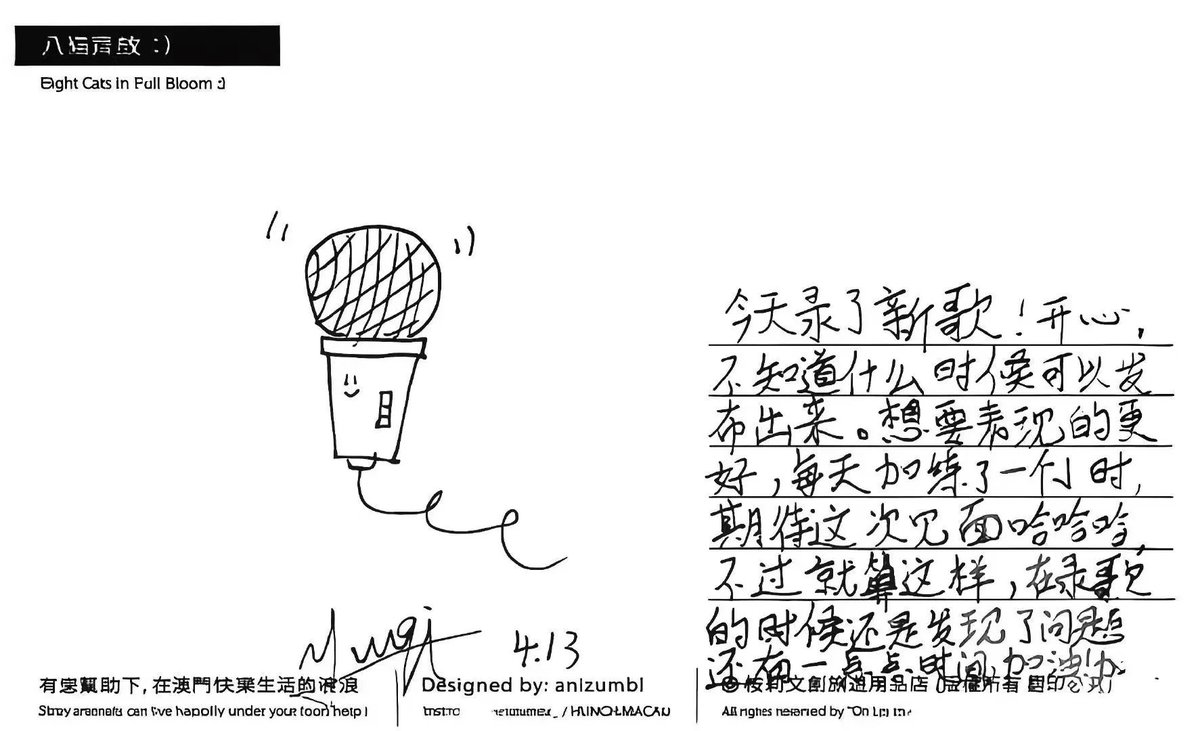 八貓齊放 :)
Eight Cats in Full Bloom :)
今天录了新歌！开心，
不知道什么时候可以发
布出来。想要表现的更
好，每天加练了一个小时，
期待这次见面哈哈哈，
不过就算这样，在录歌
的时候还是发现了问题
还有一点点时间，加油加油
4.13
有您幫助下，在澳門快樂生活的流浪
Stray animals can live happily under your help!
Designed by: anizumbi
文創旅遊用品店
All rights reserved by "On